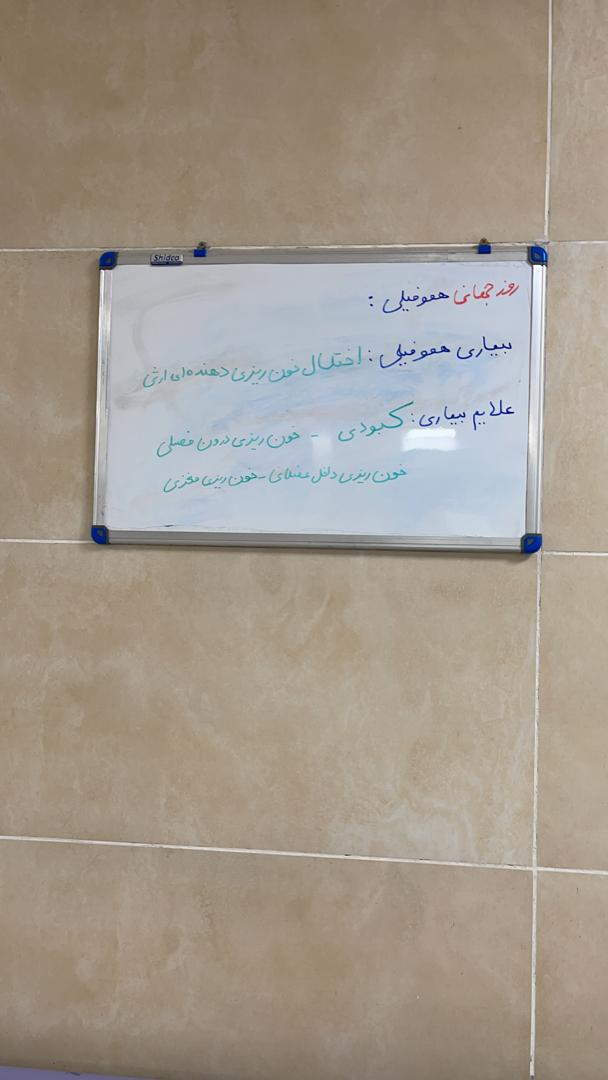 Shidco
روز جهانی هموفیلی :
بیماری هموفیلی : اختلال خون ریزی دهنده ای ارثی
علایم بیماری : کبودی - خون ریزی درون فصلی
خون ریزی داخل عضلانی - خون ریزی مغزی